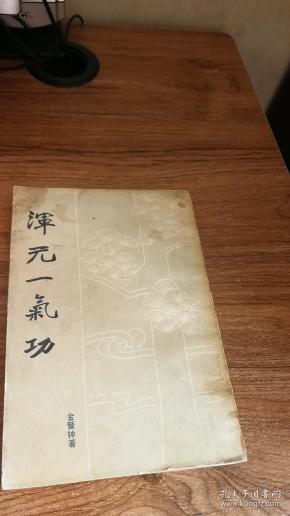 渾元一氣功
金警钟著
孔夫子旧书网